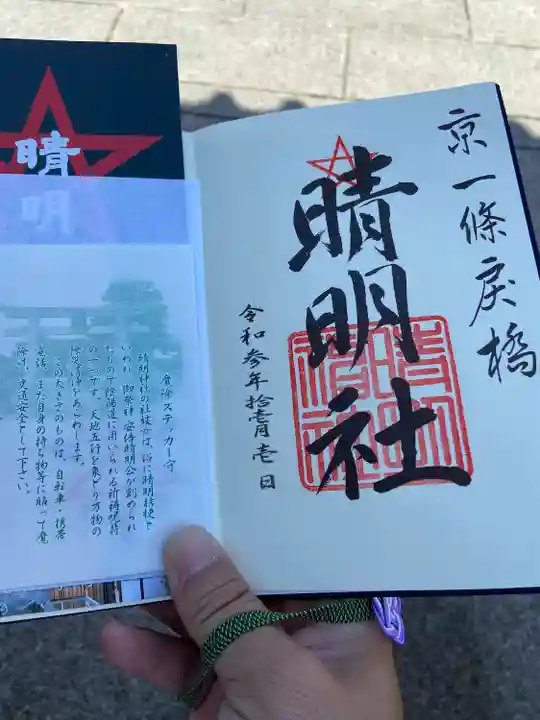 京一條戻橋
晴明社
令和参年拾壱月壱日
晴明
魔除ステッカー守
晴明神社の社紋は、俗に晴明桔梗と
いわれ、御祭神安倍晴明公が創められ
た
陰陽道に用いられる祈祷呪符
の一つです。天地五行を象どり万物の
除災清浄をあらわします。
この大きさのものは、自転車・携帯
電話、また自身の持ち物等に貼って魔
除け、交通安全として下さい。